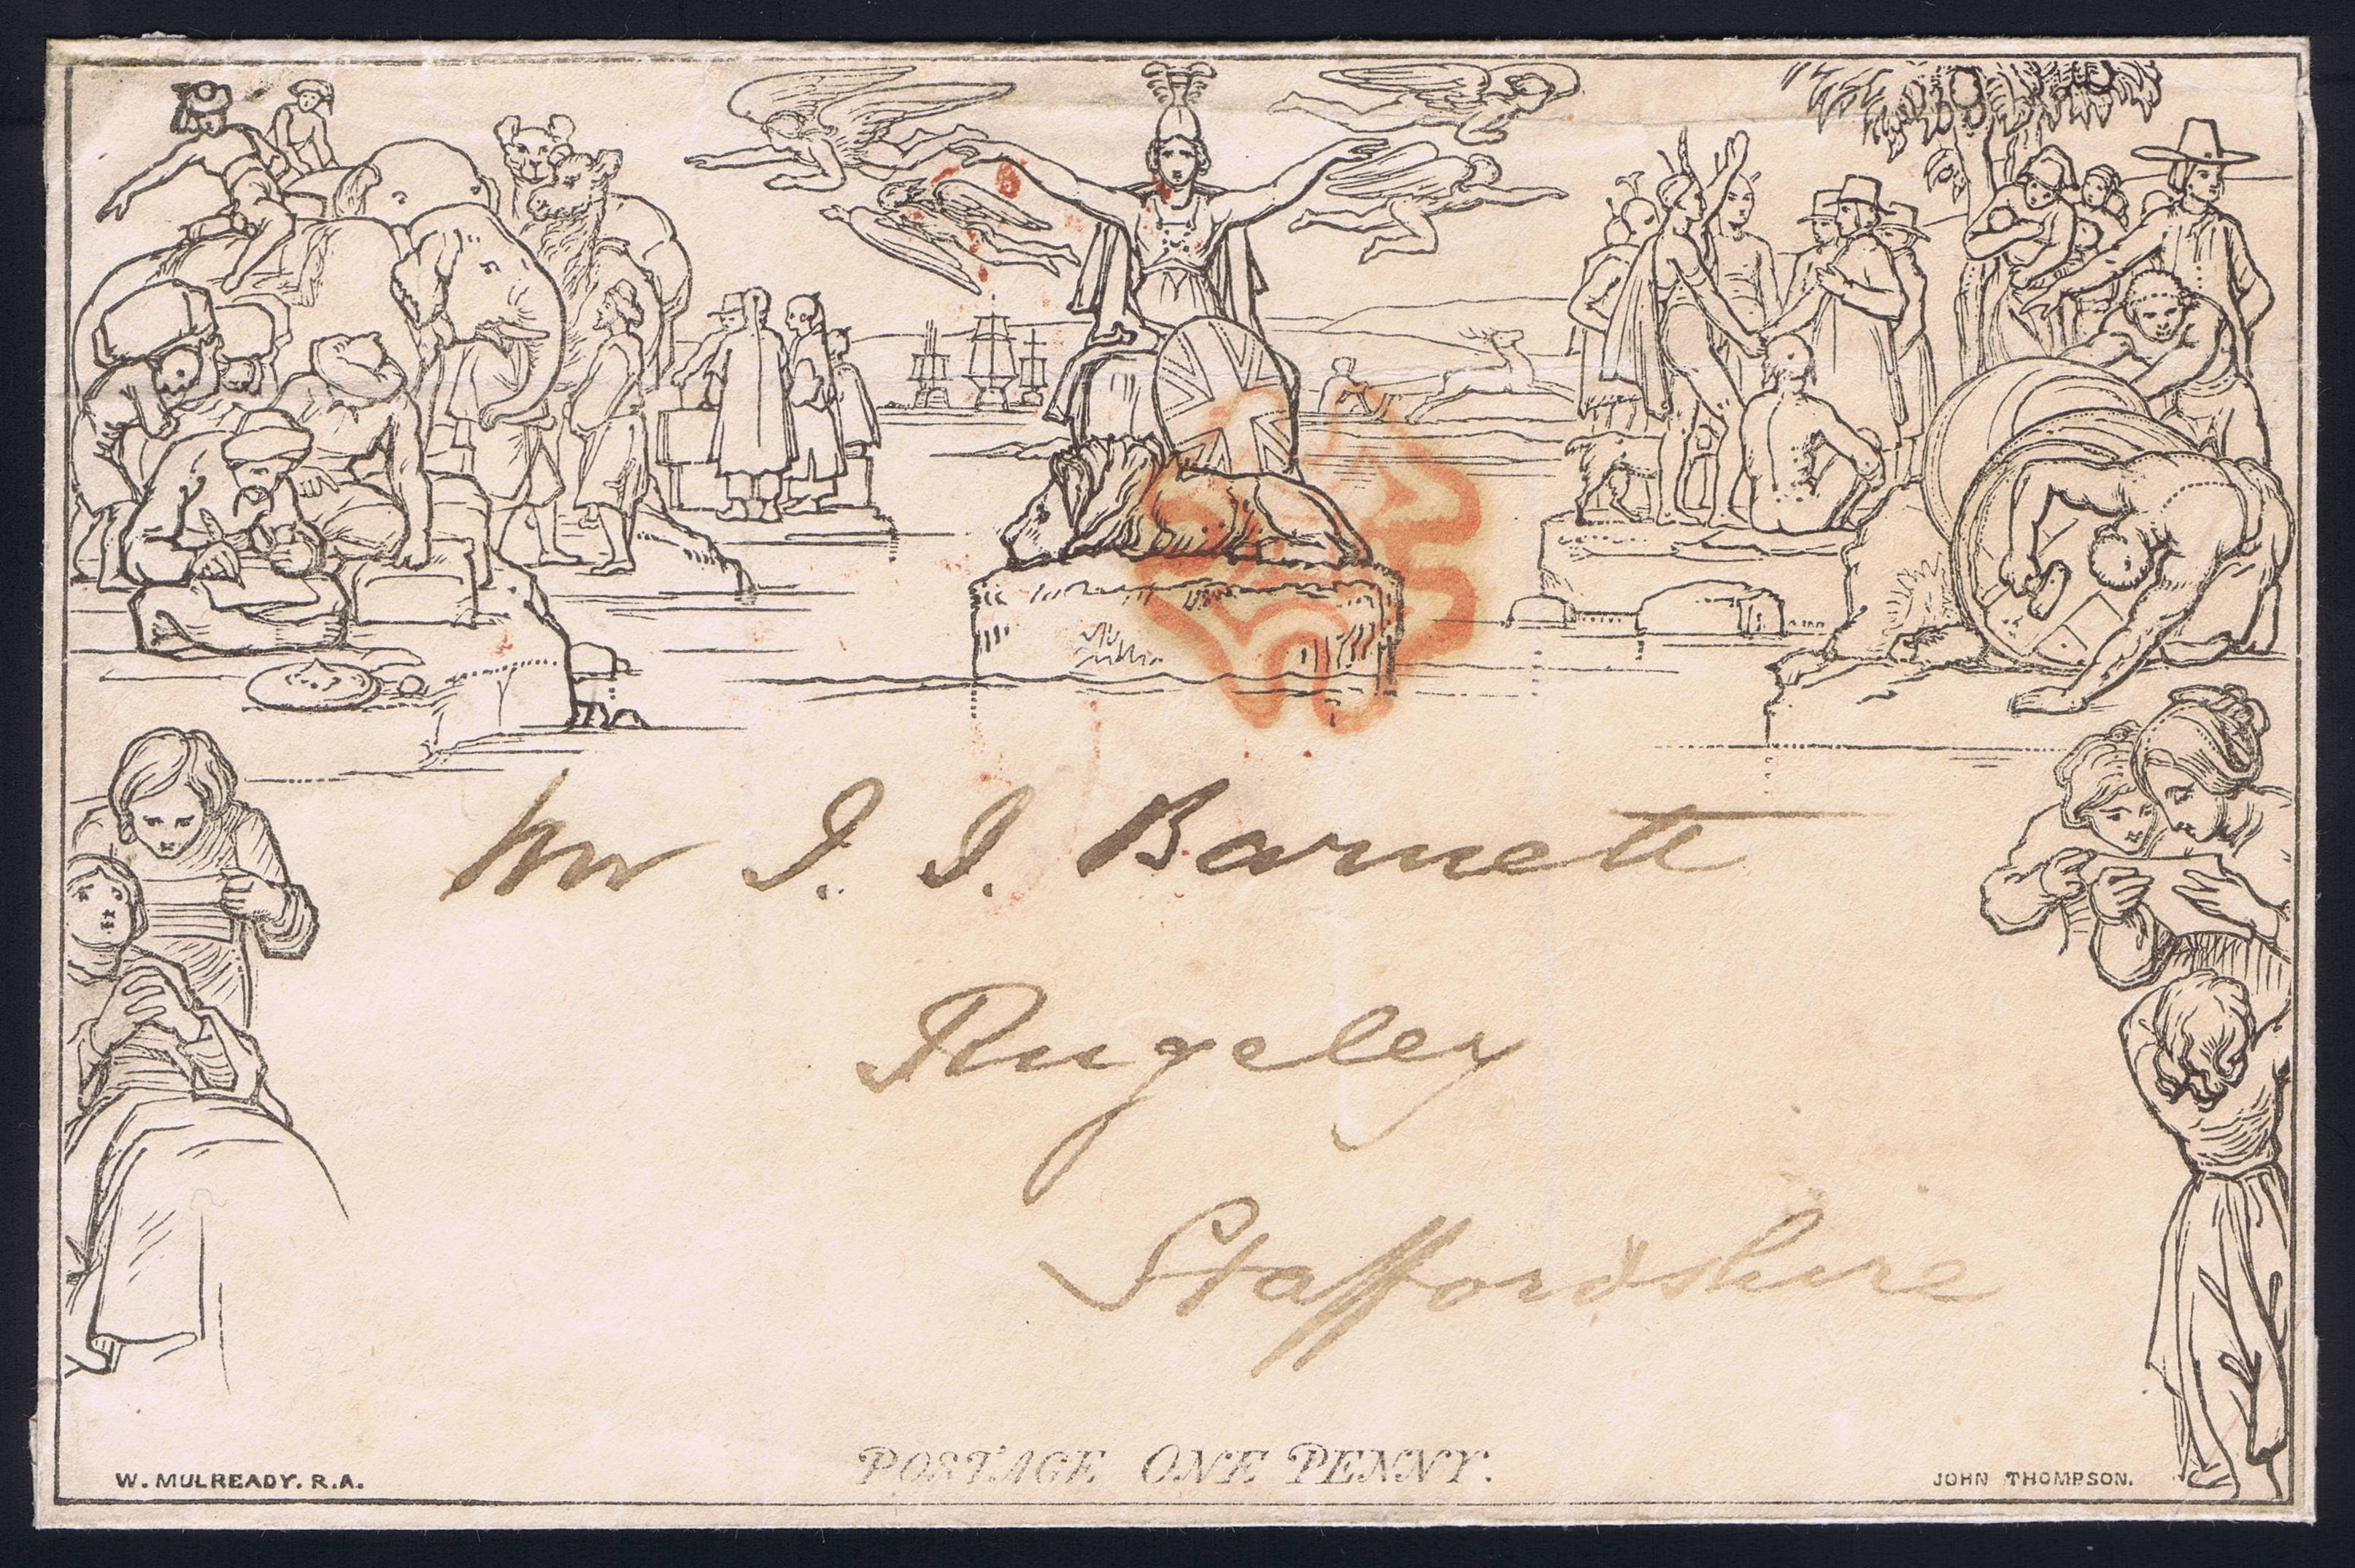 Mr J. J. Barnett
Rugeley
Staffordshire
POSTAGE ONE PENNY.
W. MULREADY. R.A.
JOHN THOMPSON.